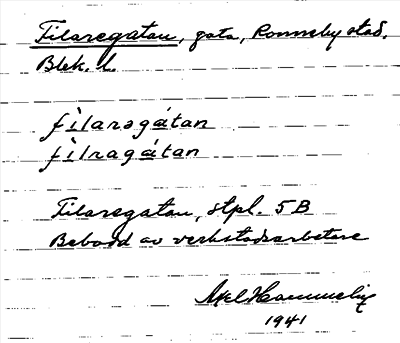 Filaregatan, gata, Ronneby stad.
Blek. l.
fìlaregátan
fìlragátan
Filaregatan, stpl. 5B
Bebodd av verkstadsarbetare
Axel
1941